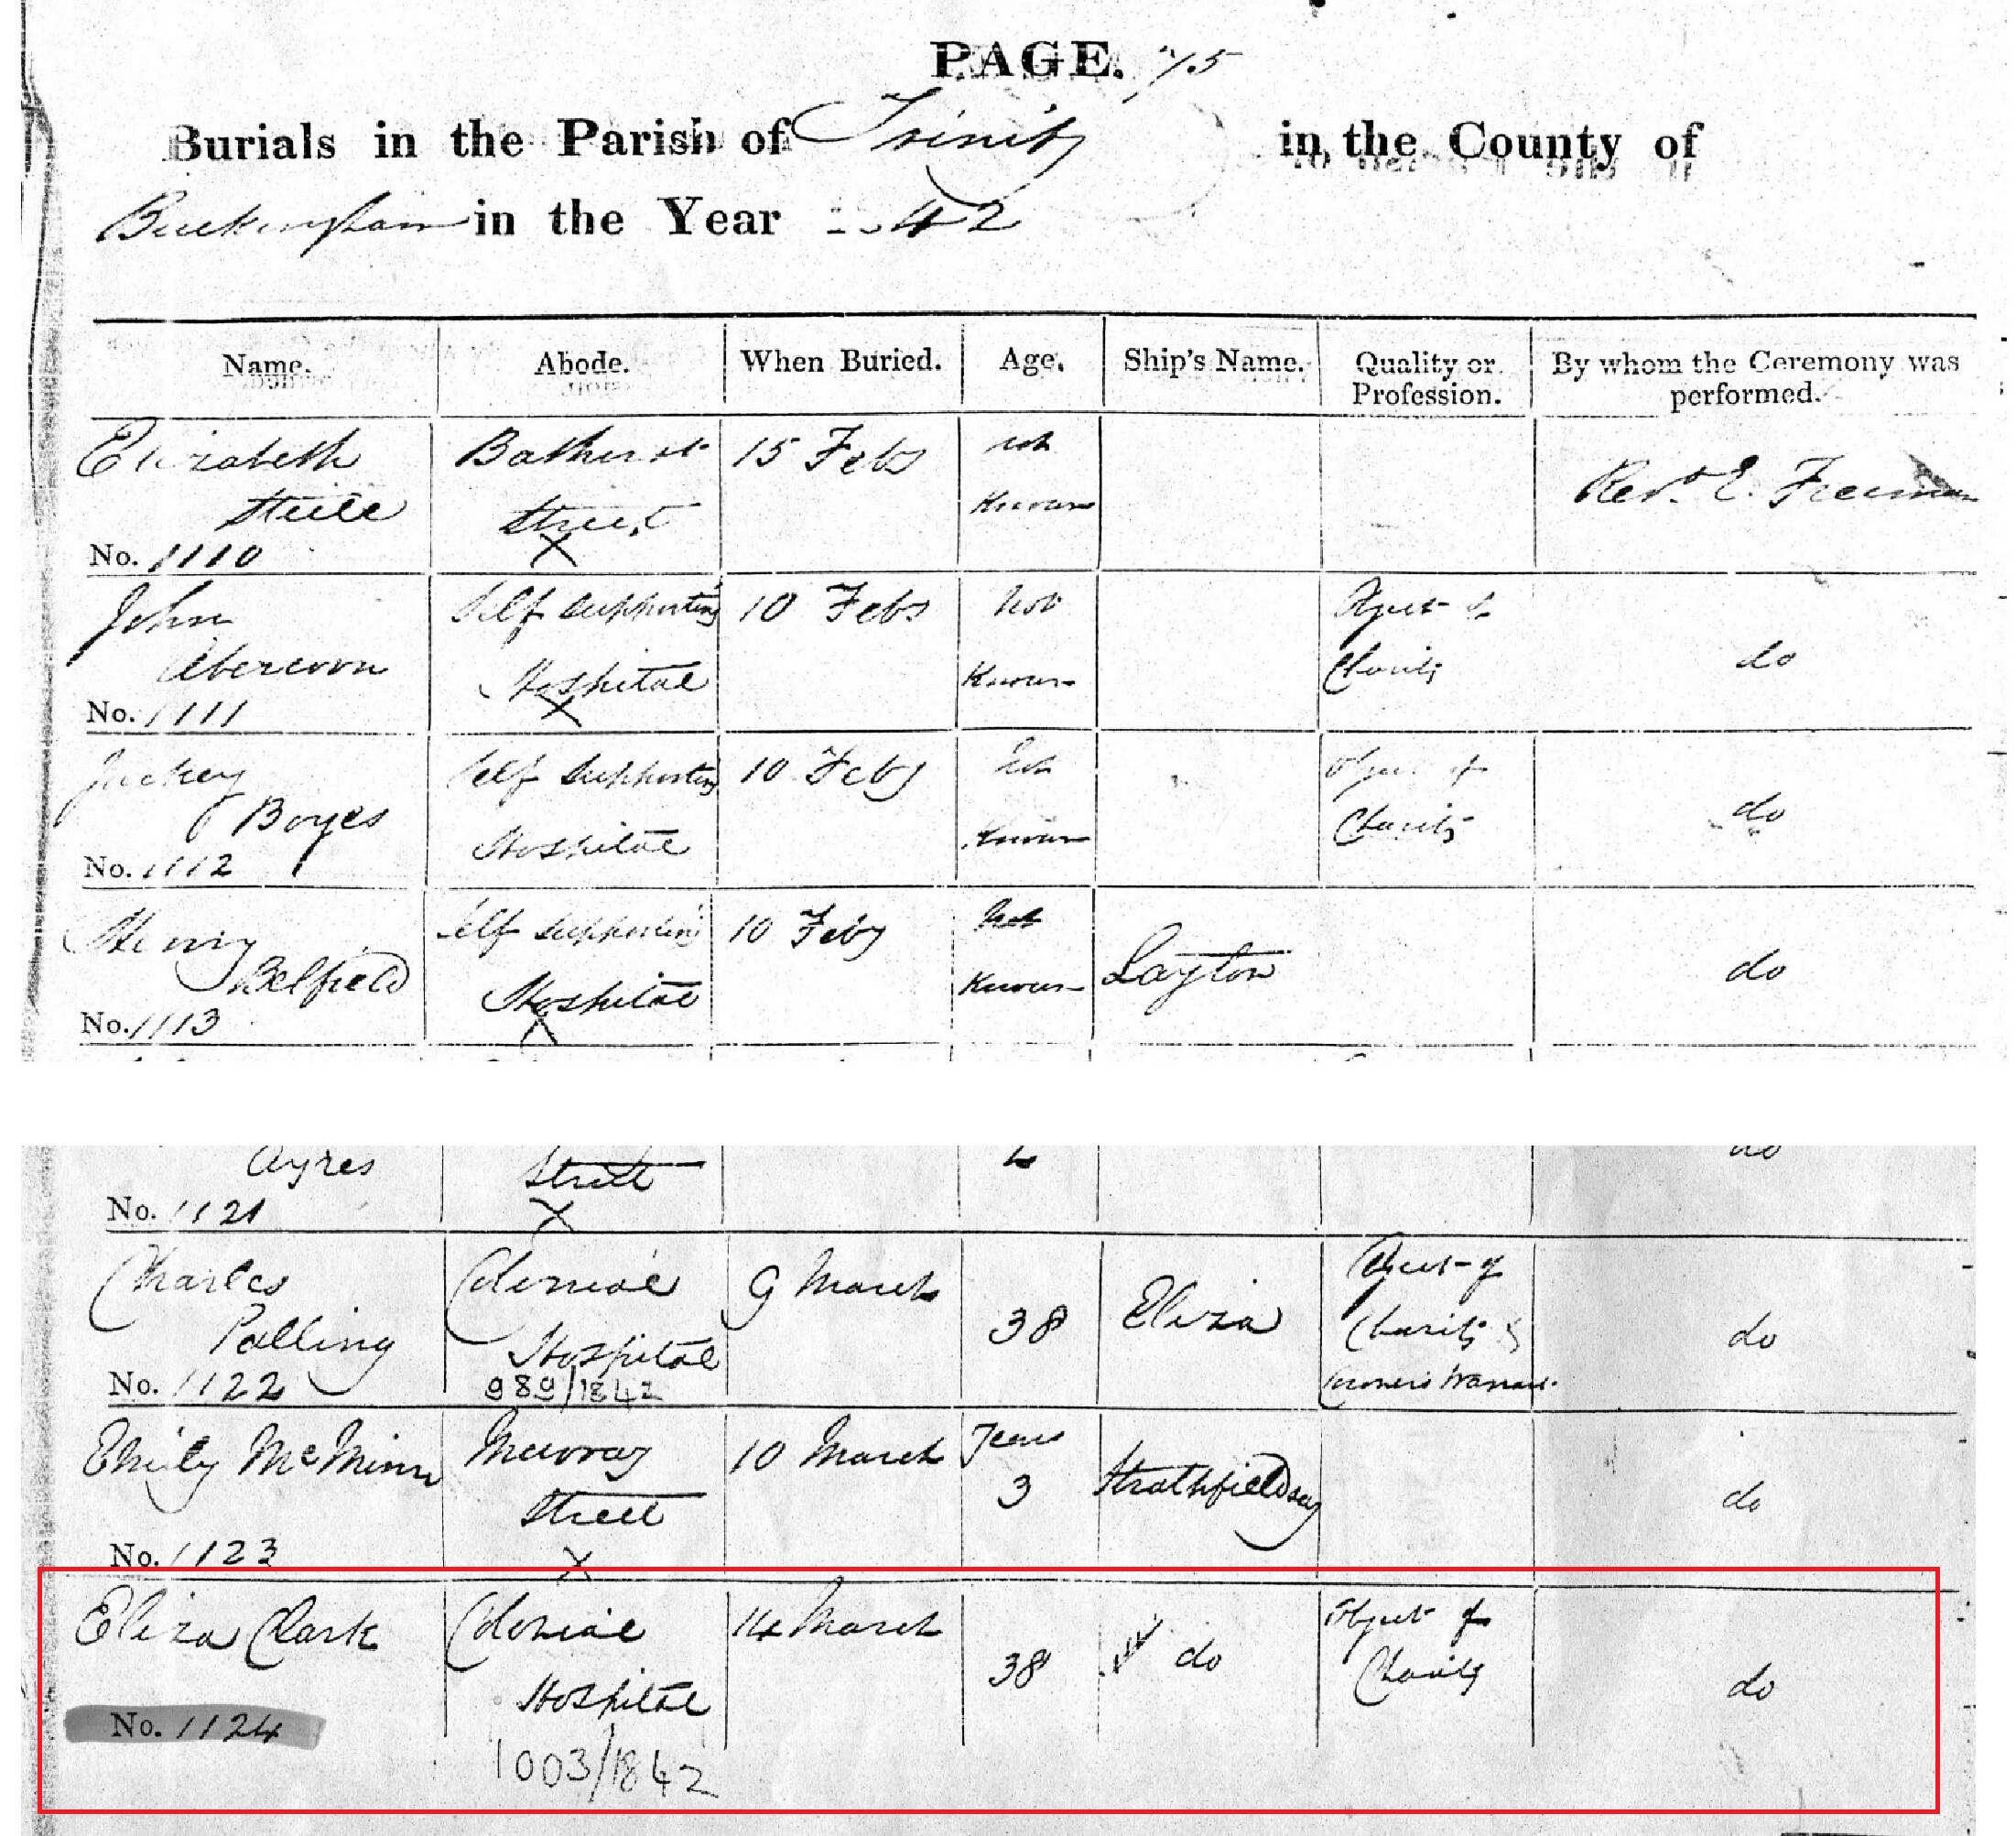 PAGE. 75
Burials in the Parish of Trinity in the County of
Buckingham in the Year 1842
Name. Abode. When Buried. Age. Ship's Name. Quality or Profession. By whom the Ceremony was performed.
Elizabeth Bathurst 15 Feby not
Steele Street Known Revd. E. Freeman
No. 1110 X
John Self Supporting 10 Feby Not Object of
Abercorn Hospital Known Charity do
No. 1111 X
Jackey Self Supporting 10 Feby Not Object of
Boyes Hospital Known Charity do
No. 1112
Henry Self Supporting 10 Feby Not
Belfield Hospital Known Layton do
No. 1113 X
Ayres Street do
No. 1121 X
Charles Colonial 9 March Object of
Palling Hospital 38 Eliza Charity & do
No. 1122 989/1842 Coroners Warrant
Emily McMinn Murray 10 March Years
Street 3 Strathfieldsay do
No. 1123 X
Eliza Clark Colonial 14 March Object of
Hospital 38 do Charity do
No. 1124
1003/1842